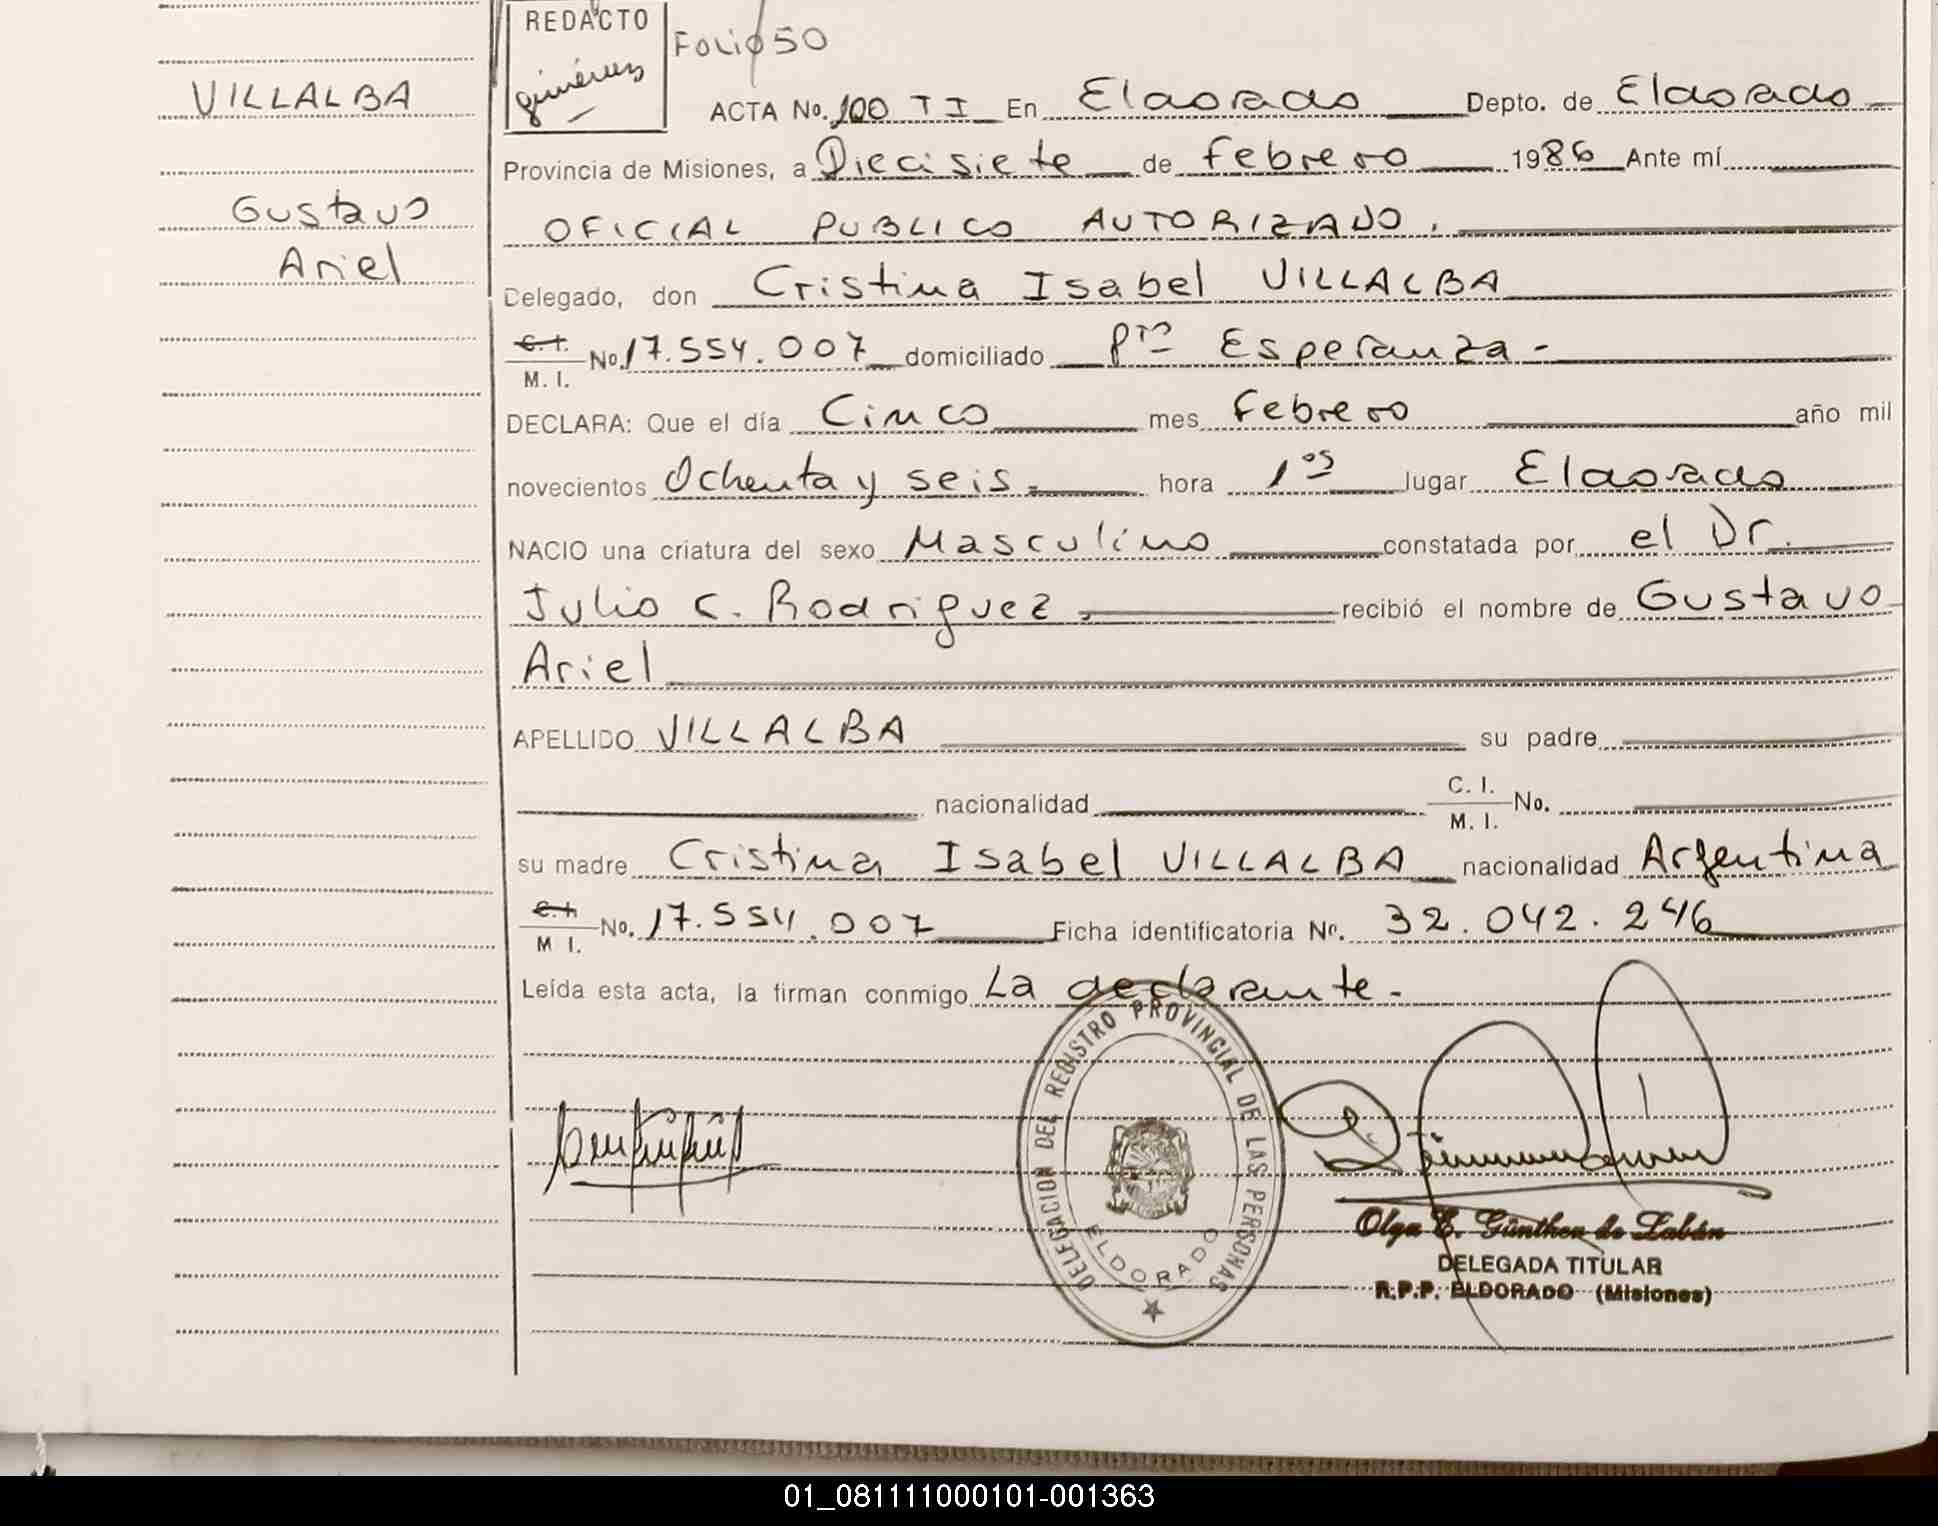 REDACTO
Folio 50
Giménez
VILLALBA
ACTA No. 100 TI En Eldorado Depto. de Eldorado
Provincia de Misiones, a Diecisiete de febrero 1986 Ante mí
Gustavo
OFICIAL PUBLICO AUTORIZADO.
Ariel
Delegado, don Cristina Isabel VILLALBA
C. I.
M. I. No. 17.554.007 domiciliado Pto Esperanza -
DECLARA: Que el día Cinco mes febrero año mil
novecientos Ochenta y seis.- hora 1os lugar Eldorado
NACIO una criatura del sexo Masculino constatada por el Dr.
Julio C. Rodriguez, recibió el nombre de Gustavo
Ariel
APELLIDO VILLALBA su padre
nacionalidad C. I.
M. I. No.
su madre Cristina Isabel VILLALBA nacionalidad Argentina
C. I.
M I. No. 17.554.007 Ficha identificatoria Nr. 32.042.246
Leída esta acta, la firman conmigo La declarante.
DELEGACION DEL REGISTRO PROVINCIAL DE LAS PERSONAS
ELDORADO
Olga E. Günther de Labán
DELEGADA TITULAR
R.P.P. ELDORADO (Misiones)
01_081111000101-001363